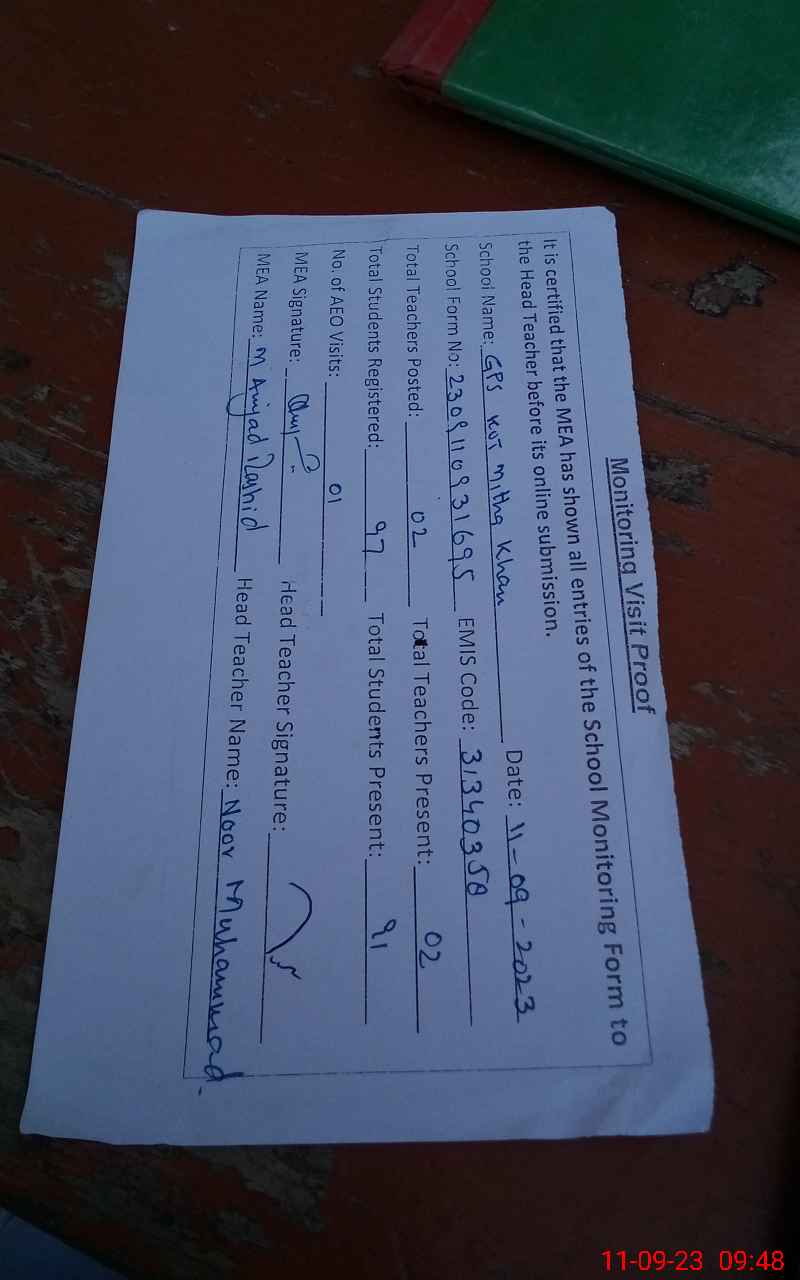 Monitoring Visit Proof
It is certified that the MEA has shown all entries of the School Monitoring Form to
the Head Teacher before its online submission.
School Name: GPS KOT Mitha Khan Date: 11-09-2023
School Form No: 230911093169S EMIS Code: 31340350
Total Teachers Posted: 02 Total Teachers Present: 02
Total Students Registered: 97 Total Students Present: 91
No. of AEO Visits: 01
MEA Signature: Head Teacher Signature:
MEA Name: M Amjad Rashid Head Teacher Name: Noor Muhammad.
11-09-23 09:48